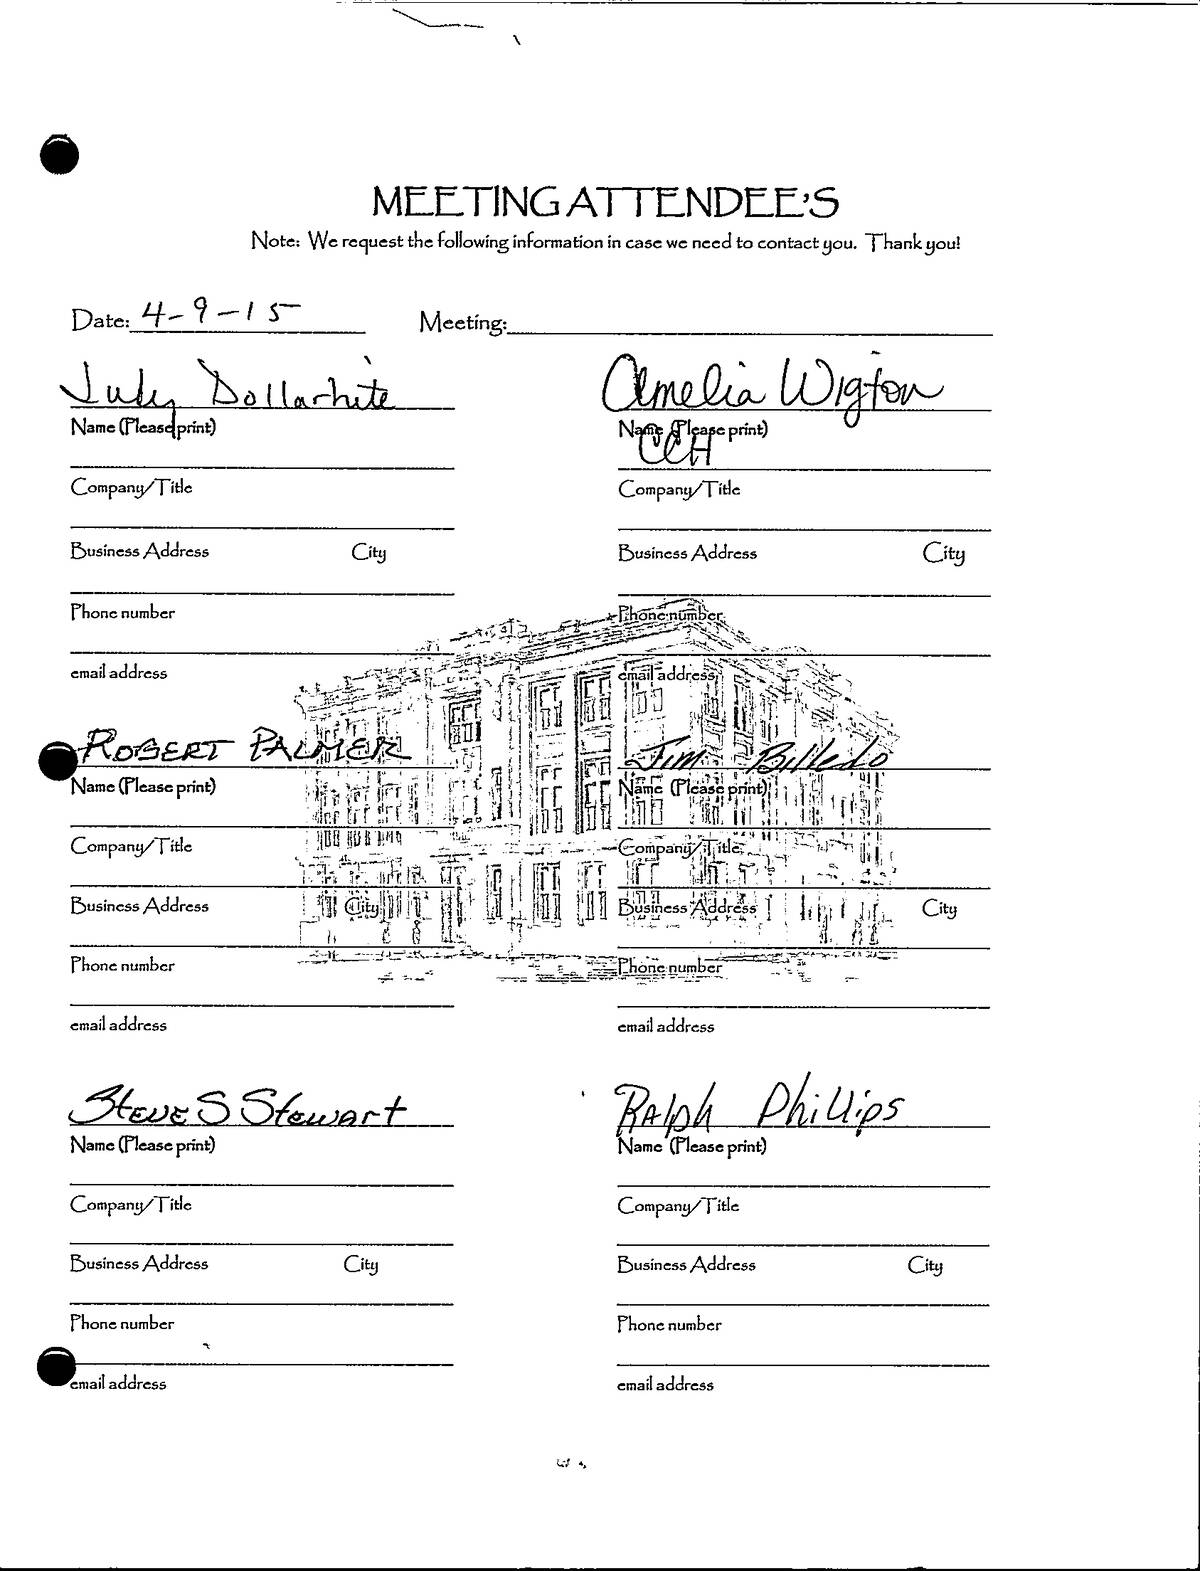 MEETING ATTENDEE'S
Note: We request the following information in case we need to contact you. Thank you!
Date: 4-9-15 Meeting:
Judy Dollarhite Amelia Wigton
Name (Please print) Name (Please print)
CCH
Company/Title Company/Title
Business Address City Business Address City
Phone number Phone number
email address email address
ROBERT PALMER Jim Billedo
Name (Please print) Name (Please print)
Company/Title Company/Title
Business Address City Business Address City
Phone number Phone number
email address email address
Steve S Stewart Ralph Phillips
Name (Please print) Name (Please print)
Company/Title Company/Title
Business Address City Business Address City
Phone number Phone number
email address email address